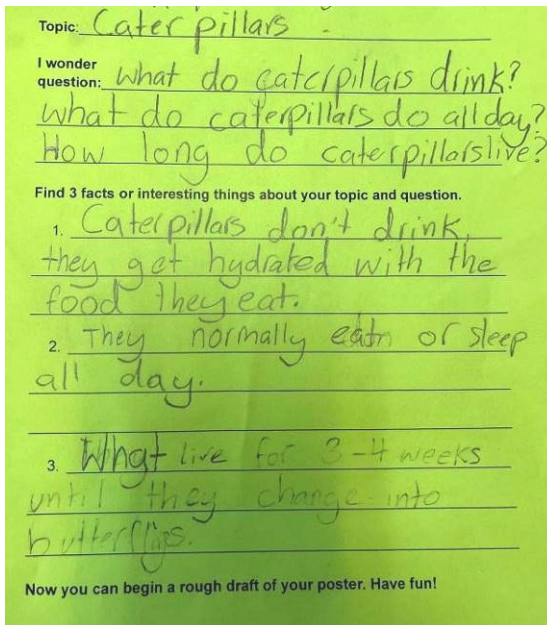 Topic: Caterpillars
I wonder
question: what do caterpillars drink?
what do caterpillars do all day?
How long do caterpillars live?
Find 3 facts or interesting things about your topic and question.
1. Caterpillars don't drink,
they get hydrated with the
food they eat.
2. They normally eat or sleep
all day.
3. What live for 3-4 weeks
until they change into
butterflies.
Now you can begin a rough draft of your poster. Have fun!